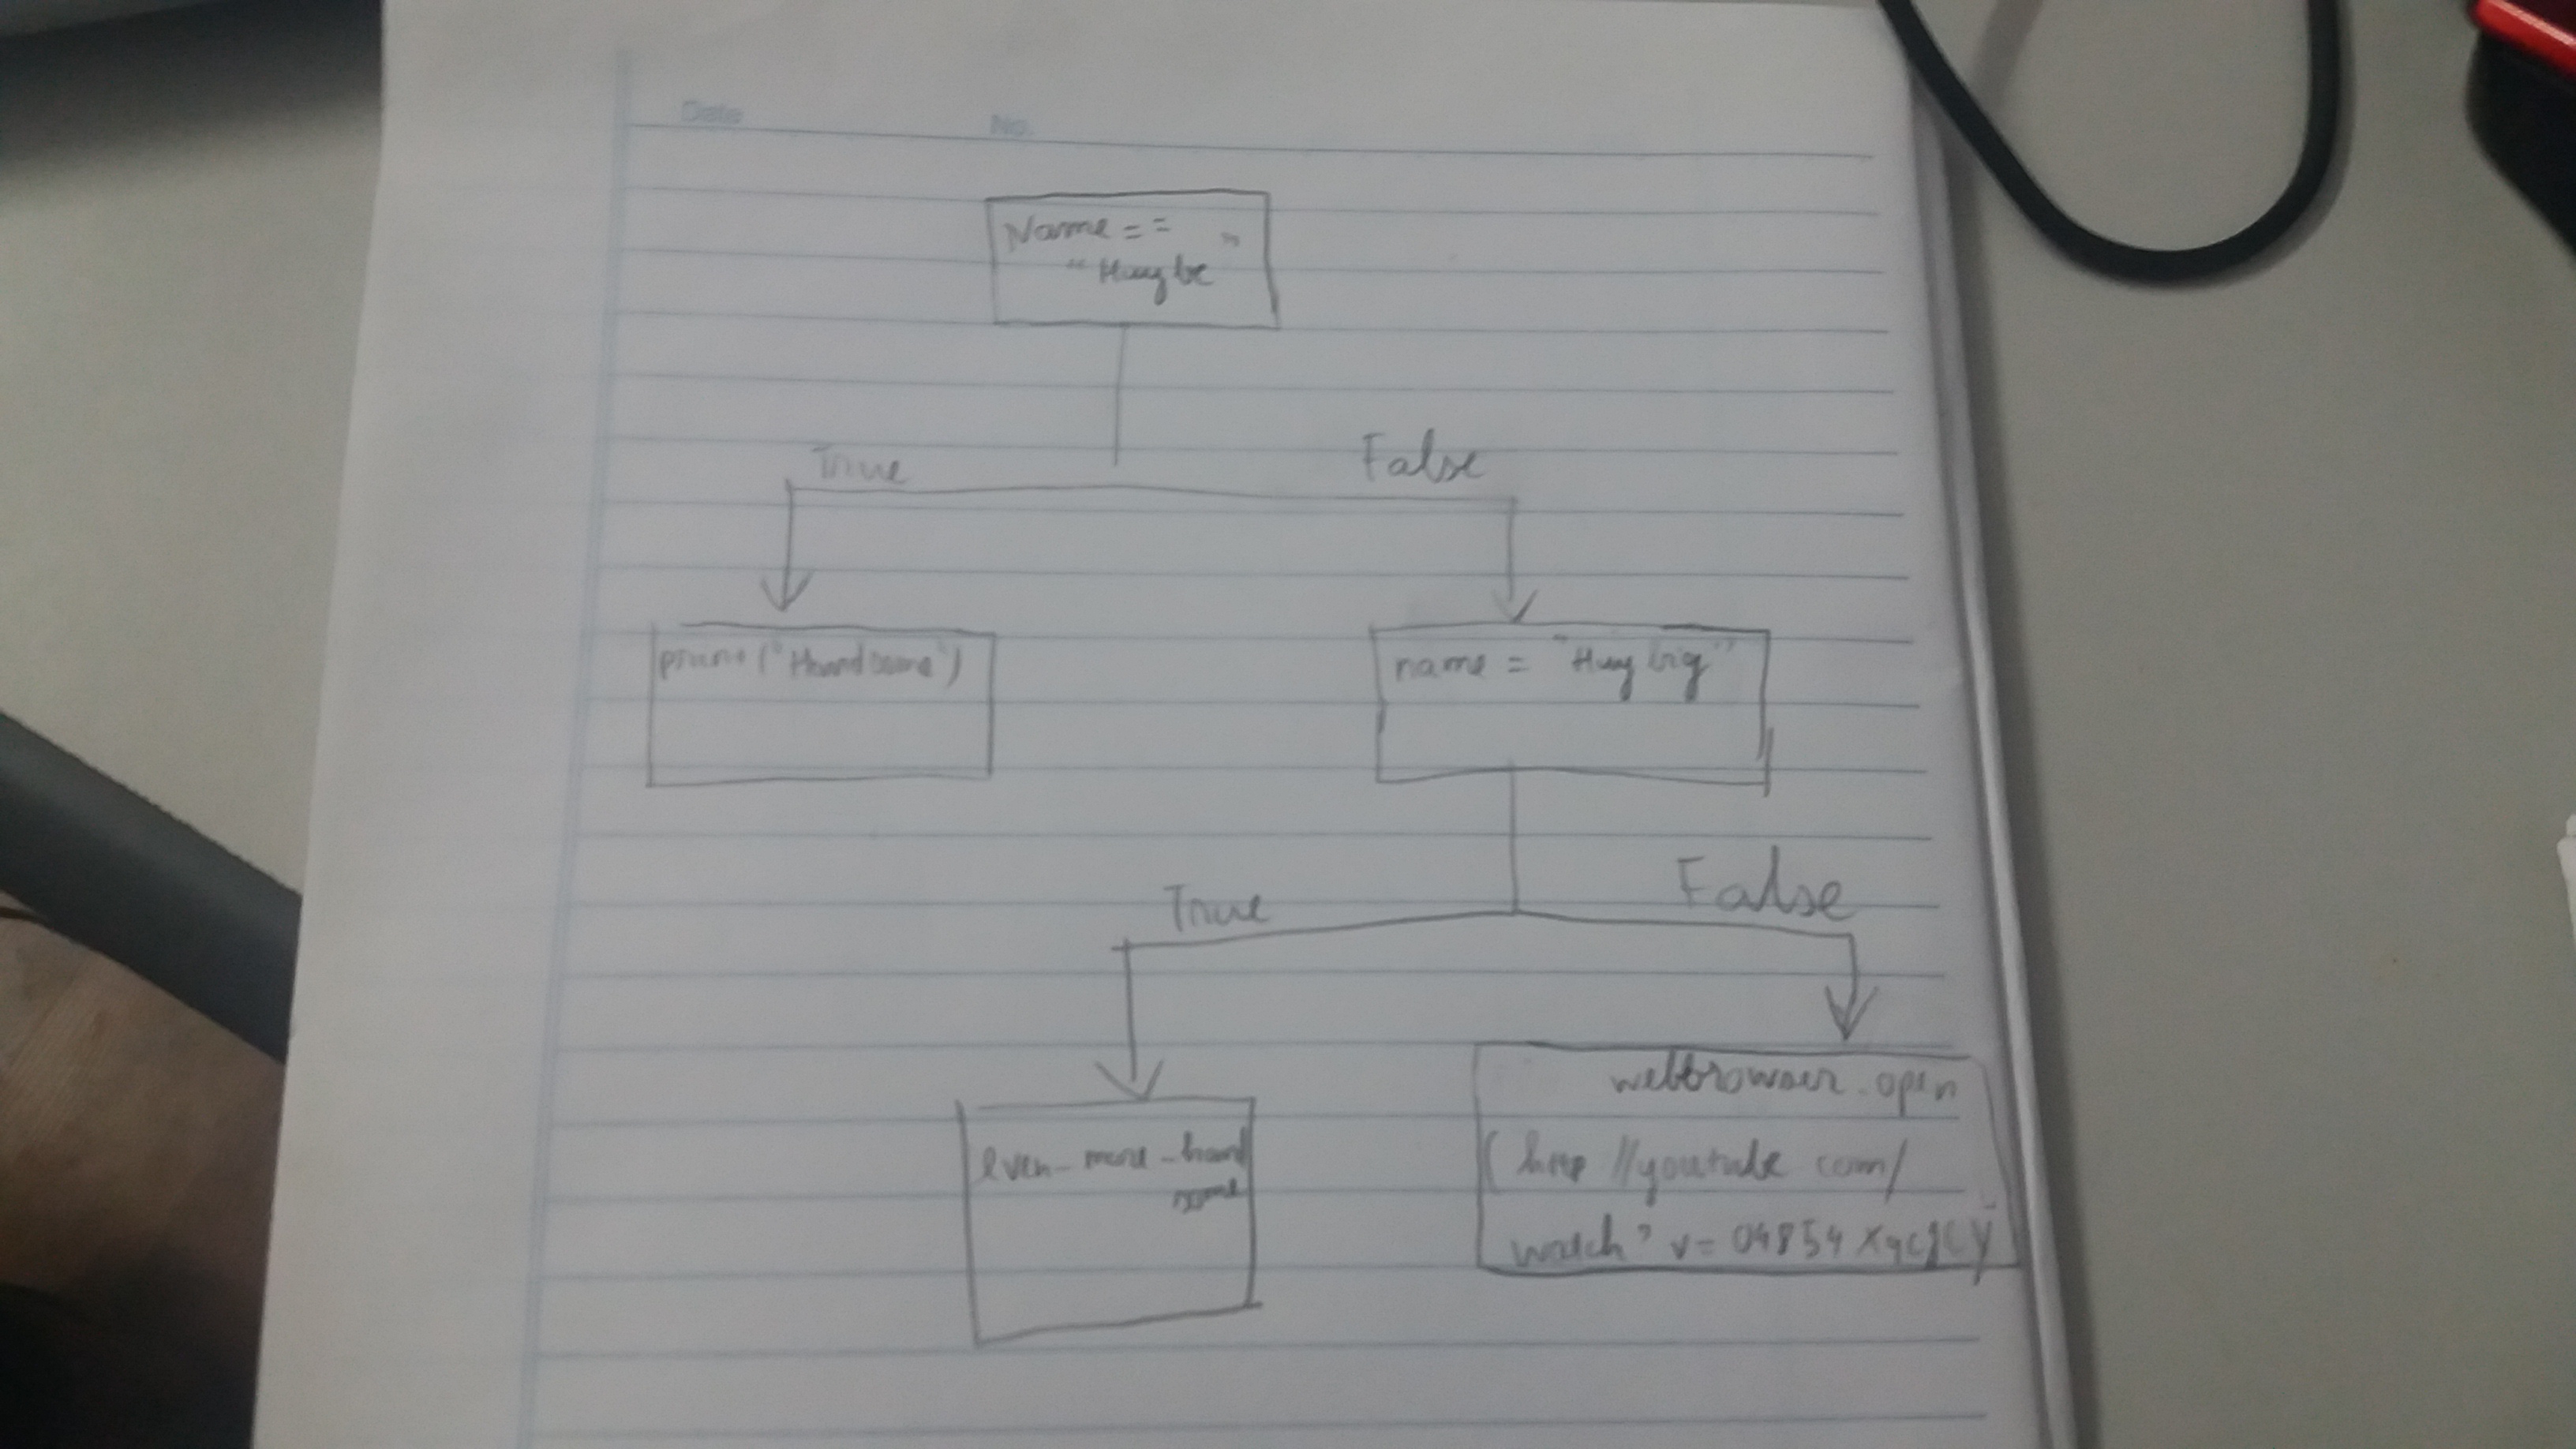 Date
No.
Name ==
"Huy be"
True
False
print("Handsome")
name = "Huy big"
True
False
even-more-hand
some
webbrowser.open
(http //youtube com/
watch? v=